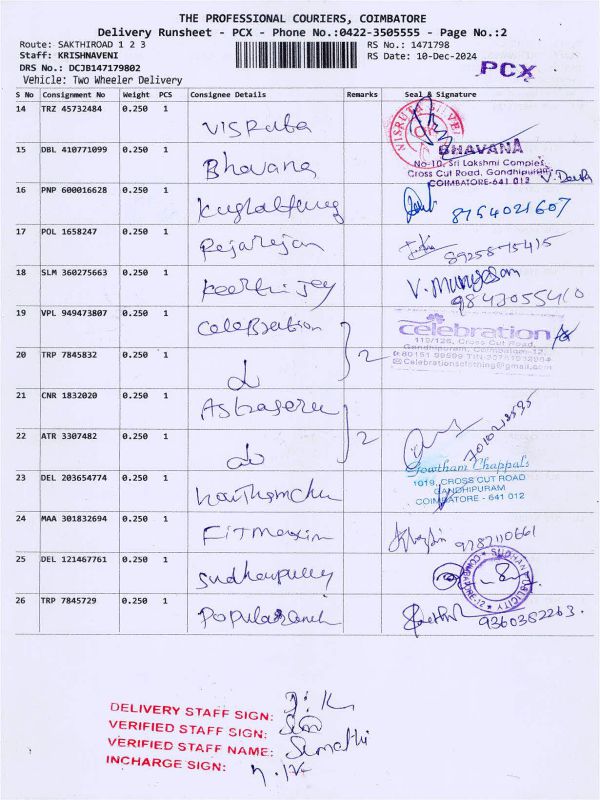 THE PROFESSIONAL COURIERS, COIMBATORE
Delivery Runsheet - PCX - Phone No.:0422-3505555 - Page No.:2
Route: SAKTHIROAD 1 2 3
Staff: KRISHNAVENI
DRS No.: DCJB147179802
Vehicle: Two Wheeler Delivery
RS No.: 1471798
RS Date: 10-Dec-2024
PCX
S No Consignment No Weight PCS Consignee Details Remarks Seal & Signature
14 TRZ 45732484 0.250 1 Visruba
15 DBL 410771099 0.250 1 Bhavana
BHAVANA
No-10, Sri Lakshmi Complex,
Cross Cut Road, Gandhipuram
COIMBATORE-641 012
16 PNP 600016628 0.250 1 8754021607
17 POL 1658247 0.250 1 Rajarajan 8925875415
18 SLM 360275663 0.250 1 V. Murugesan
9843055410
19 VPL 949473807 0.250 1 Celebration
celebration
119/126, Cross Cut Road,
Gandhipuram, Coimbatore-12.
20 TRP 7845832 0.250 1 do 2
21 CNR 1832020 0.250 1
22 ATR 3307482 0.250 1 do 2
Gowtham Chappals
1019, CROSS CUT ROAD
GANDHIPURAM
COIMBATORE - 641 012
23 DEL 203654774 0.250 1
24 MAA 301832694 0.250 1 Fitmaxim 9787110661
25 DEL 121467761 0.250 1
26 TRP 7845729 0.250 1 9360352263.
DELIVERY STAFF SIGN:
VERIFIED STAFF SIGN:
VERIFIED STAFF NAME: Sumathi
INCHARGE SIGN: